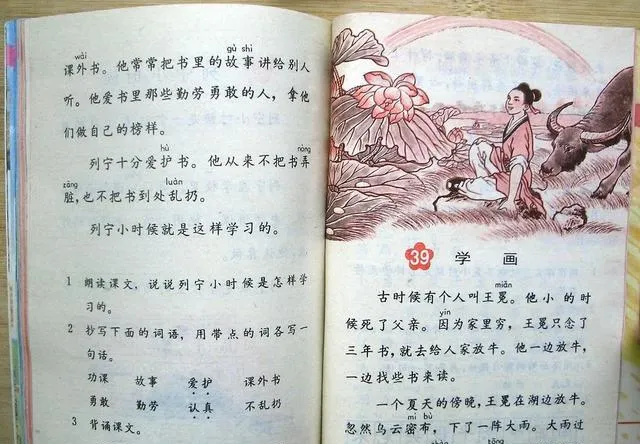 wài gù shi
课外书。他常常把书里的故事讲给别人
听。他爱书里那些勤劳勇敢的人，拿他
们做自己的榜样。
hù nòng
列宁十分爱护书。他从来不把书弄
zāng luàn
脏，也不把书到处乱扔。
列宁小时候就是这样学习的。
1 朗读课文，说说列宁小时候是怎样学
习的。
2 抄写下面的词语，用带点的词各写一
句话。
功课 故事 爱护 课外书
勇敢 勤劳 认真 不乱扔
3 背诵课文。
39 学 画
miǎn
古时候有个人叫王冕。他小的时
yīn
候死了父亲。因为家里穷，王冕只念了
三年书，就去给人家放牛。他一边放牛，
一边找些书来读。
一个夏天的傍晚，王冕在湖边放牛。
mì bù
忽然乌云密布，下了一阵大雨。大雨过
tōng